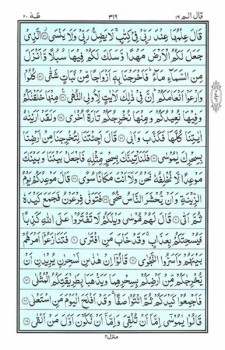 قال الم ١٦ ٣١٩ طه ٢٠
قَالَ عِلْمُهَا عِنْدَ رَبِّي فِي كِتٰبٍ لَا يَضِلُّ رَبِّي وَلَا يَنْسَى الَّذِي
جَعَلَ لَكُمُ الْأَرْضَ مَهْدًا وَسَلَكَ لَكُمْ فِيهَا سُبُلًا وَأَنْزَلَ
مِنَ السَّمَاءِ مَاءً فَأَخْرَجْنَا بِهِ أَزْوَاجًا مِنْ نَبَاتٍ شَتَّى كُلُوا
وَارْعَوْا أَنْعَامَكُمْ إِنَّ فِي ذٰلِكَ لَآيٰتٍ لِأُولِي النُّهَى مِنْهَا خَلَقْنٰكُمْ
وَفِيهَا نُعِيدُكُمْ وَمِنْهَا نُخْرِجُكُمْ تَارَةً أُخْرَى وَلَقَدْ أَرَيْنٰهُ
اٰيٰتِنَا كُلَّهَا فَكَذَّبَ وَأَبَى قَالَ أَجِئْتَنَا لِتُخْرِجَنَا مِنْ أَرْضِنَا
بِسِحْرِكَ يٰمُوسَى فَلَنَأْتِيَنَّكَ بِسِحْرٍ مِثْلِهِ فَاجْعَلْ بَيْنَنَا وَبَيْنَكَ
مَوْعِدًا لَا نُخْلِفُهُ نَحْنُ وَلَا أَنْتَ مَكَانًا سُوًى قَالَ مَوْعِدُكُمْ يَوْمُ
الزِّينَةِ وَأَنْ يُحْشَرَ النَّاسُ ضُحًى فَتَوَلَّى فِرْعَوْنُ فَجَمَعَ كَيْدَهُ
ثُمَّ أَتَى قَالَ لَهُمْ مُوسَى وَيْلَكُمْ لَا تَفْتَرُوا عَلَى اللّٰهِ كَذِبًا
فَيُسْحِتَكُمْ بِعَذَابٍ وَقَدْ خَابَ مَنِ افْتَرَى فَتَنَازَعُوا أَمْرَهُمْ
بَيْنَهُمْ وَأَسَرُّوا النَّجْوَى قَالُوا إِنْ هٰذٰنِ لَسٰحِرٰنِ يُرِيدٰنِ أَنْ
يُخْرِجٰكُمْ مِنْ أَرْضِكُمْ بِسِحْرِهِمَا وَيَذْهَبَا بِطَرِيقَتِكُمُ الْمُثْلَى
فَأَجْمِعُوا كَيْدَكُمْ ثُمَّ ائْتُوا صَفًّا وَقَدْ أَفْلَحَ الْيَوْمَ مَنِ اسْتَعْلَى
قَالُوا يٰمُوسَى إِمَّا أَنْ تُلْقِيَ وَإِمَّا أَنْ نَكُونَ أَوَّلَ مَنْ أَلْقَى
منزل ٤